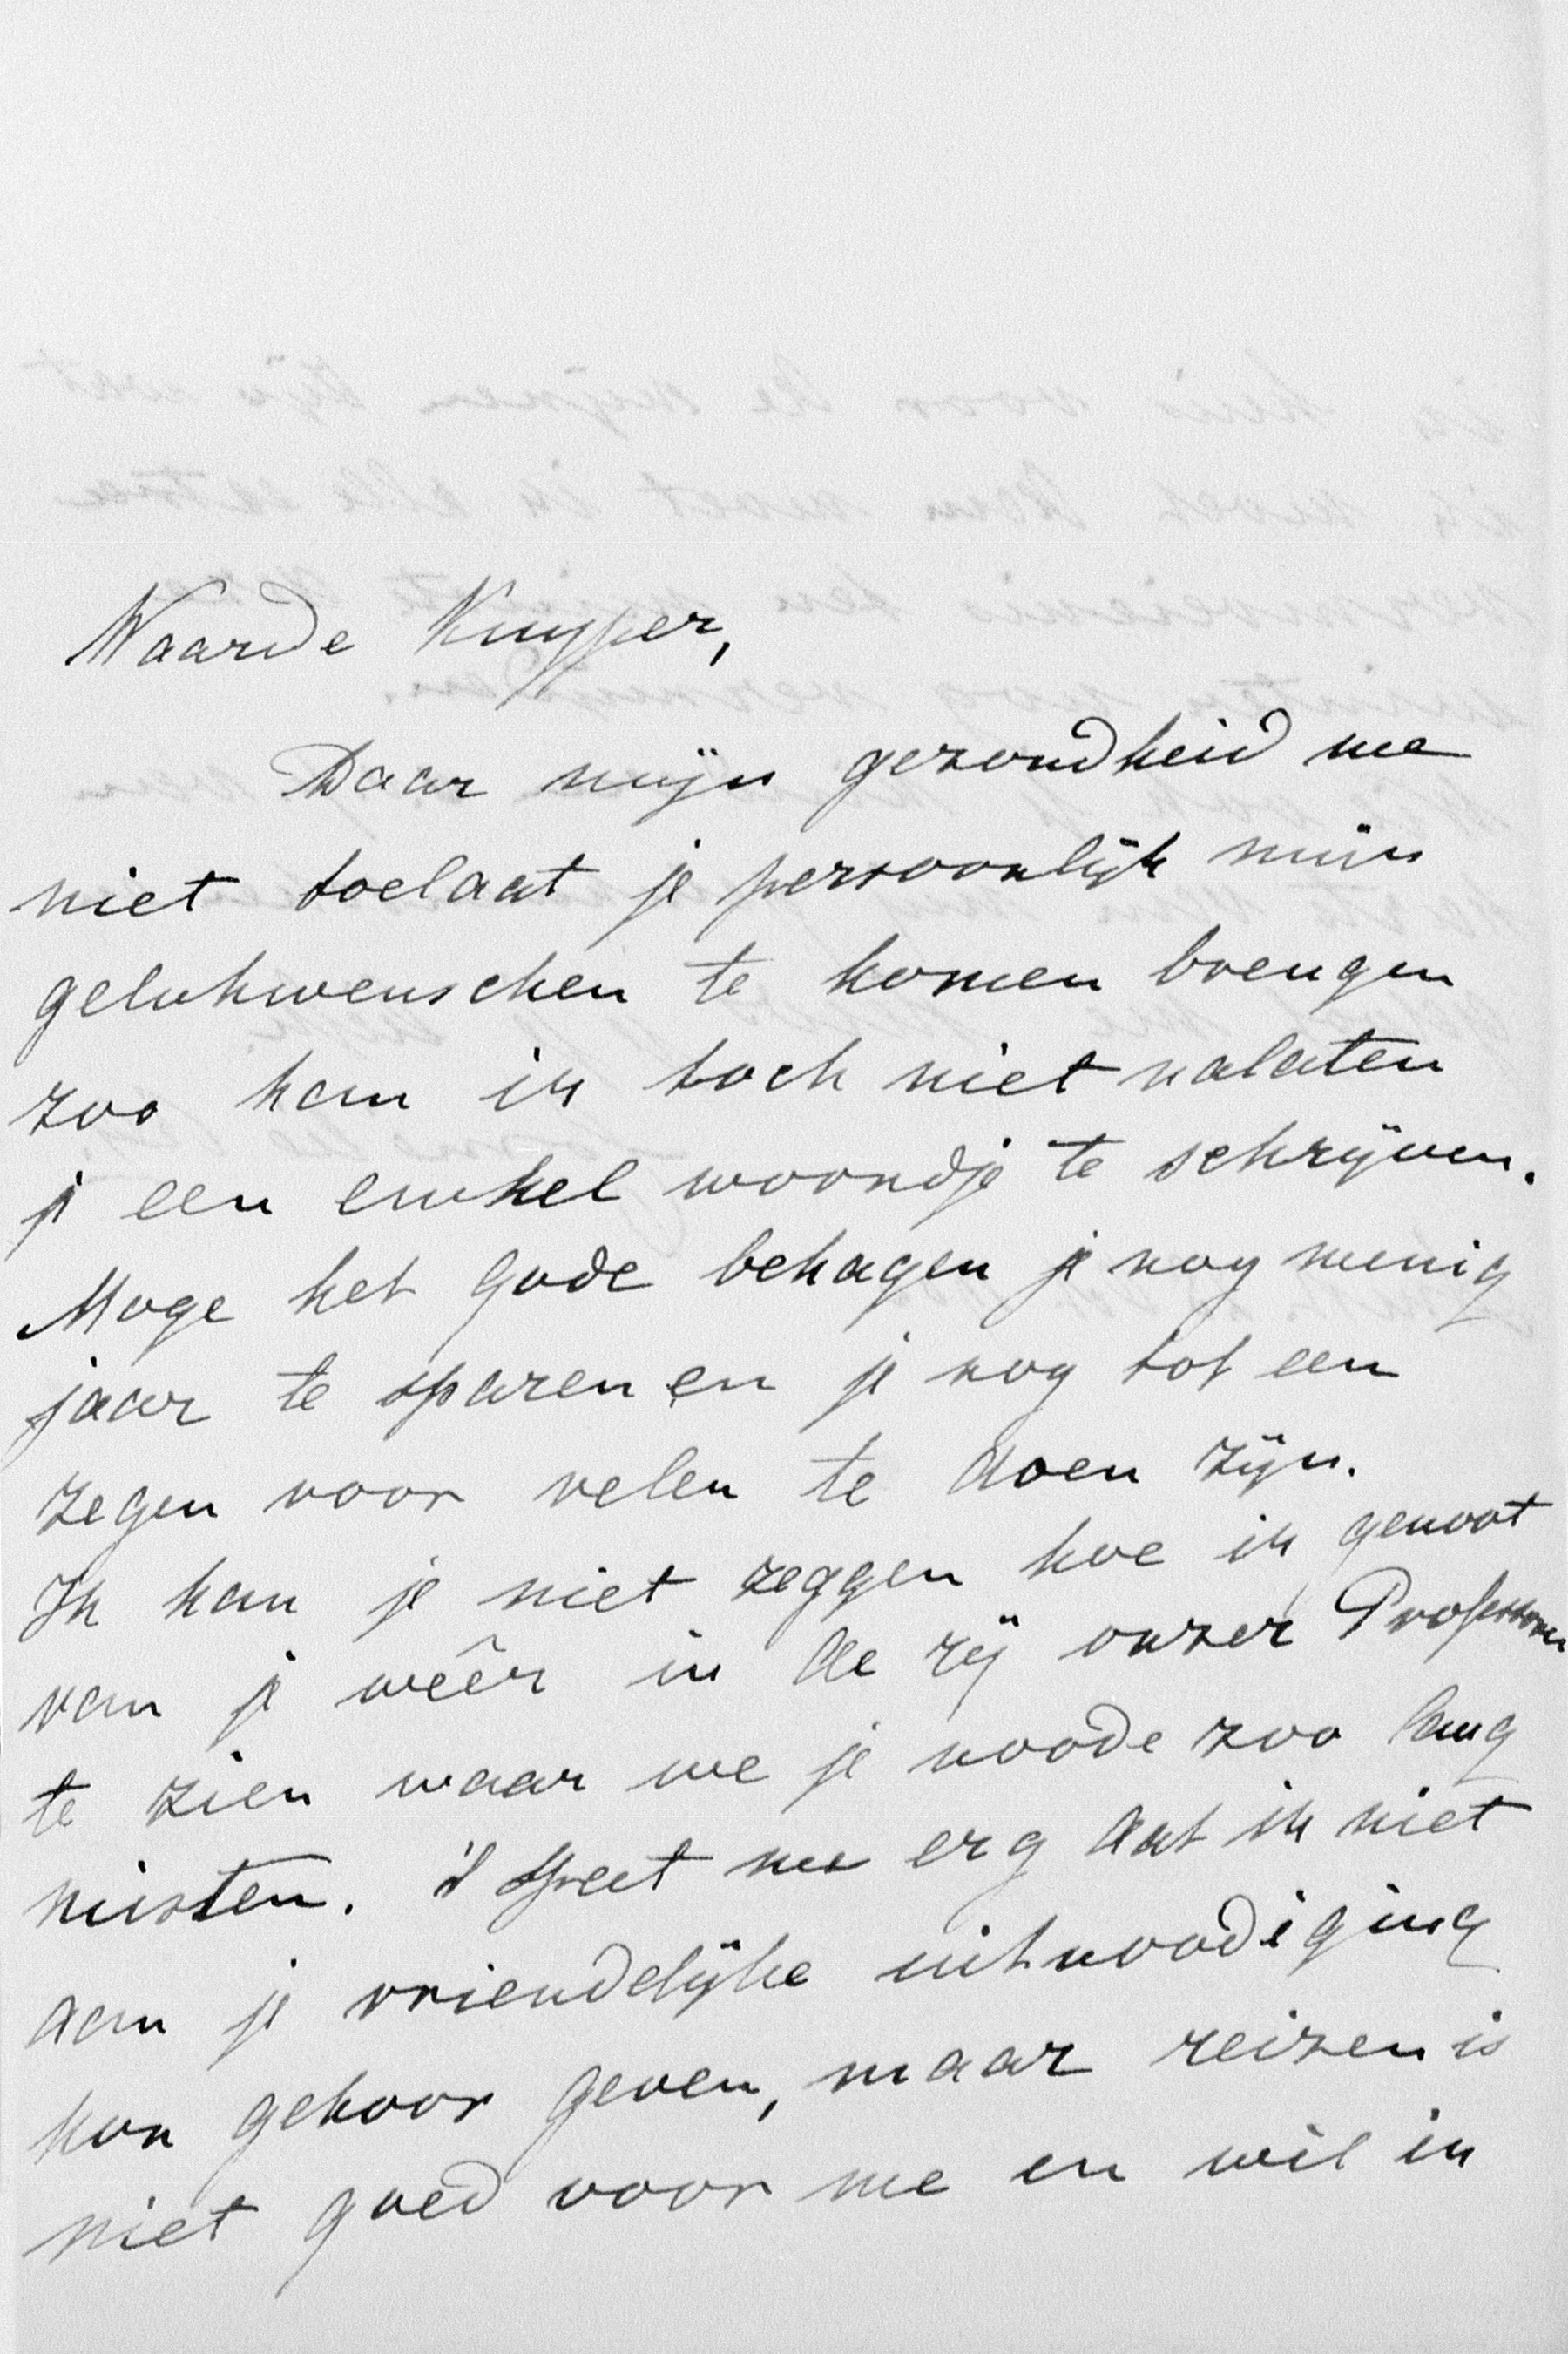 Waarde Kuyper,
Daar mijn gezondheid me
niet toelaat je persoonlijk mijn
gelukwenschen te komen brengen
zoo kan ik toch niet nalaten
je een enkel woordje te schrijven.
Moge het Gode behagen je nog menig
jaar te sparen en je nog tot een
zegen voor velen te doen zijn.
Ik kan je niet zeggen hoe ik genoot
van je wêêr in de rij onzer Professoren
te zien waar we je noode zoo lang
misten. 't Speet me erg dat ik niet
aan je vriendelijke uitnoodiging
kon gehoor geven, maar reizen is
niet goed voor me en wil ik